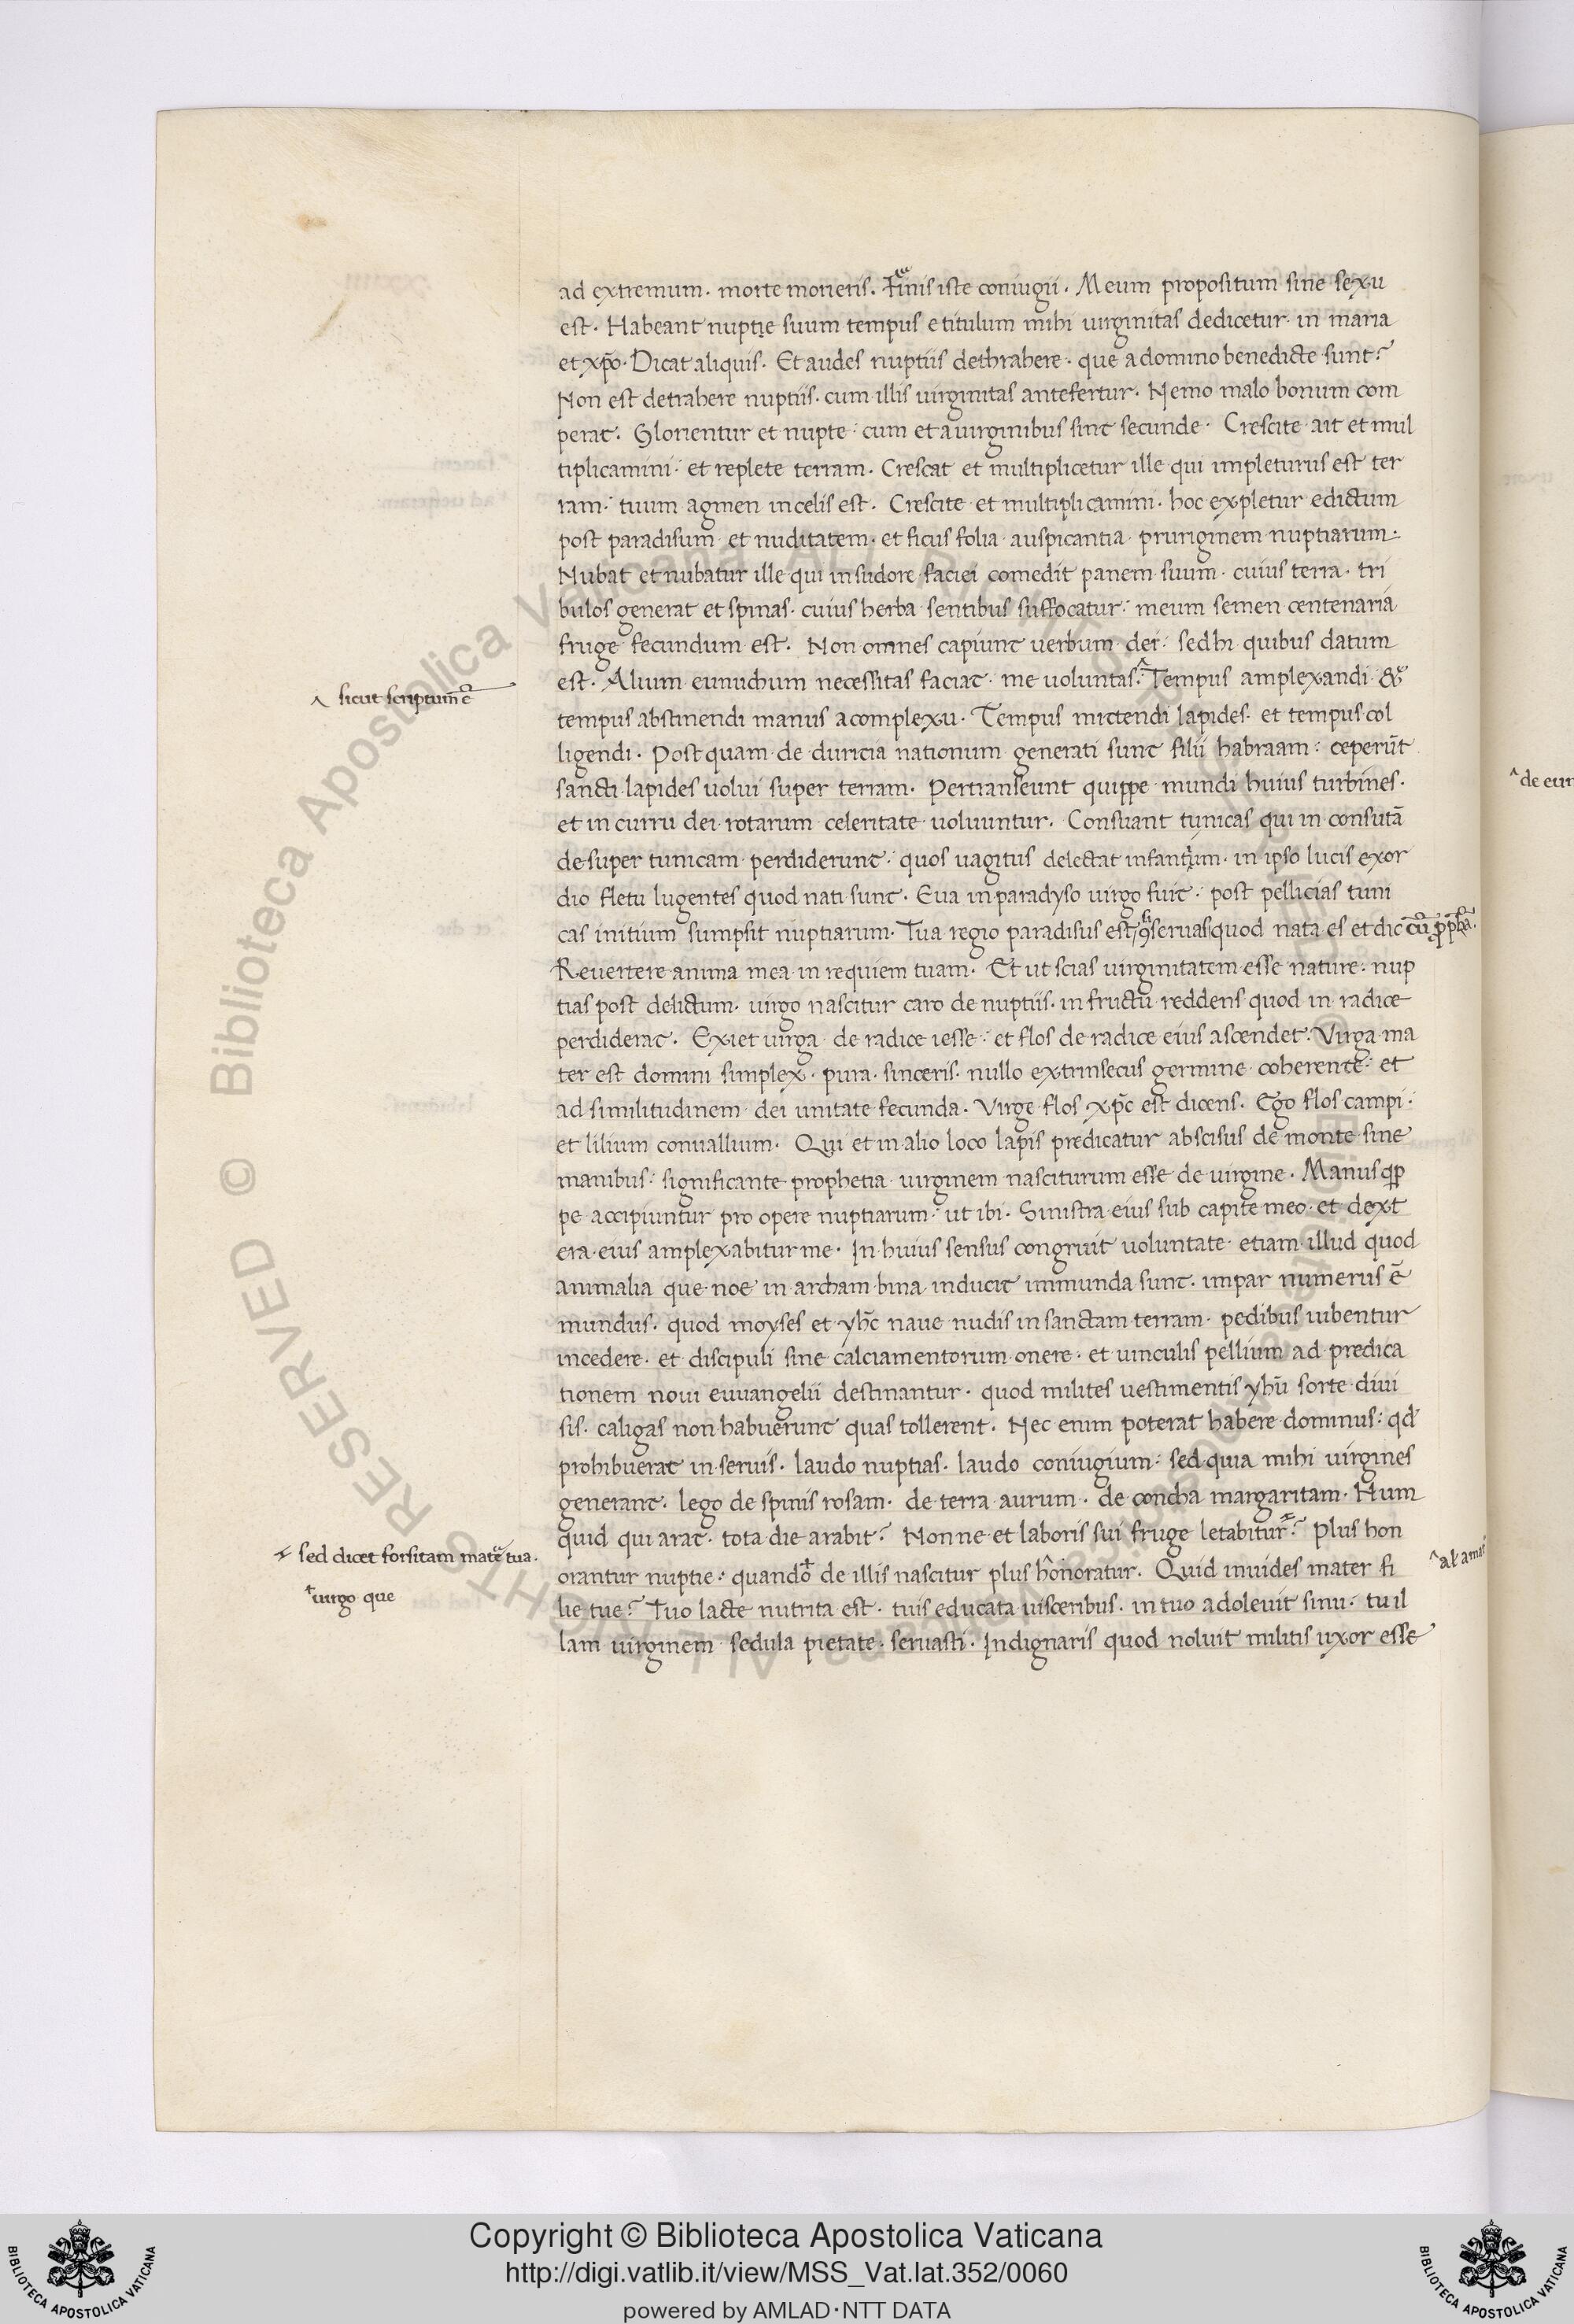 ad extremum. morte morieris. Finis iste coniugii. Meum propositum sine sexu
est. Habeant nuptie suum tempus et titulum mihi uirginitas dedicetur in maria
et xp̄o. Dicat aliquis. Et audes nuptiis dethrahere. que a domino benedicte sunt?
Non est detrahere nuptiis. cum illis uirginitas antefertur. Nemo malo bonum com
perat. Glorientur et nupte: cum et a uirginibus sint secunde. Crescite ait et mul
tiplicamini: et replete terram. Crescat et multiplicetur ille qui impleturus est ter
ram: tuum agmen in celis est. Crescite et multiplicamini. hoc expletur edictum
post paradisum et nuditatem. et ficus folia auspicantia pruriginem nuptiarum:
Nubat et nubatur ille qui in sudore faciei comedit panem suum. cuius terra. tri
bulos generat et spinas. cuius herba sentibus suffocatur: meum semen centenaria
fruge fecundum est. Non omnes capiunt uerbum dei: sed hi quibus datum
est. Alium eunuchum necessitas faciat. me uoluntas.^ Tempus amplexandi &
^ sicut scriptum ē
tempus abstinendi manus a complexu. Tempus mittendi lapides. et tempus col
ligendi. Postquam de duricia nationum generati sunt filii habraam: ceperūt
sancti lapides uolui super terram. Pertranseunt quippe mundi huius turbines.
et in curru dei rotarum celeritate uoluuntur. Consuant tunicas qui in consutā
desuper tunicam perdiderunt: quos uagitus delectat infantium. in ipso lucis exor
dio fletu lugentes quod nati sunt. Eua in paradyso uirgo fuit: post pellicias tuni
cas initium sumpsit nuptiarum. Tua regio paradisus est, si ꝯseruas quod nata es et dic cū pp̄ha.
Reuertere anima mea in requiem tuam. Et ut scias uirginitatem esse nature. nup
tias post delictum. uirgo nascitur caro de nuptiis. in fructū reddens quod in radice
perdiderat. Exiet uirga de radice iesse: et flos de radice eius ascendet. Virga ma
ter est domini simplex. pura. sinceris. nullo extrinsecus germine coherente: et
ad similitudinem dei unitate fecunda. Virge flos xp̄c est dicens. Ego flos campi:
et lilium conuallium. Qui et in alio loco lapis predicatur abscisus de monte sine
manibus: significante prophetia uirginem nasciturum esse de uirgine. Manus qp
pe accipiuntur pro opere nuptiarum: ut ibi. Sinistra eius sub capite meo. et dext
era eius amplexabitur me. In huius sensus congruit uoluntate etiam illud quod
animalia que noe in archam bina inducit immunda sunt. impar numerus ē
mundus. quod moyses et yhc̄ naue nudis in sanctam terram. pedibus iubentur
incedere. et discipuli sine calciamentorum onere. et uinculis pellium ad predica
tionem noui euuangelii destinantur. quod milites uestimentis yhū sorte diui
sis. caligas non habuerunt quas tollerent. Nec enim poterat habere dominus: qd
prohibuerat in seruis. laudo nuptias. laudo coniugium: sed quia mihi uirgines
generant. lego de spinis rosam. de terra aurum. de concha margaritam. Num
quid qui arat. tota die arabit? Nonne et laboris sui fruge letabitur? Plus hon
sed dicet forsitam mater tua.
orantur nuptie: quando de illis nascitur plus honoratur. Quid inuides mater fi
uirgo que
lie tue? Tuo lacte nutrita est. tuis educata uisceribus. in tuo adoleuit sinu. tu il
lam uirginem sedula pietate. seruasti. Indignaris quod noluit militis uxor esse
^ de eun
Biblioteca Apostolica Vaticana
ALL RIGHTS RESERVED ©
Copyright © Biblioteca Apostolica Vaticana
http://digi.vatlib.it/view/MSS_Vat.lat.352/0060
powered by AMLAD·NTT DATA
BIBLIOTECA APOSTOLICA VATICANA
BIBLIOTECA APOSTOLICA VATICANA